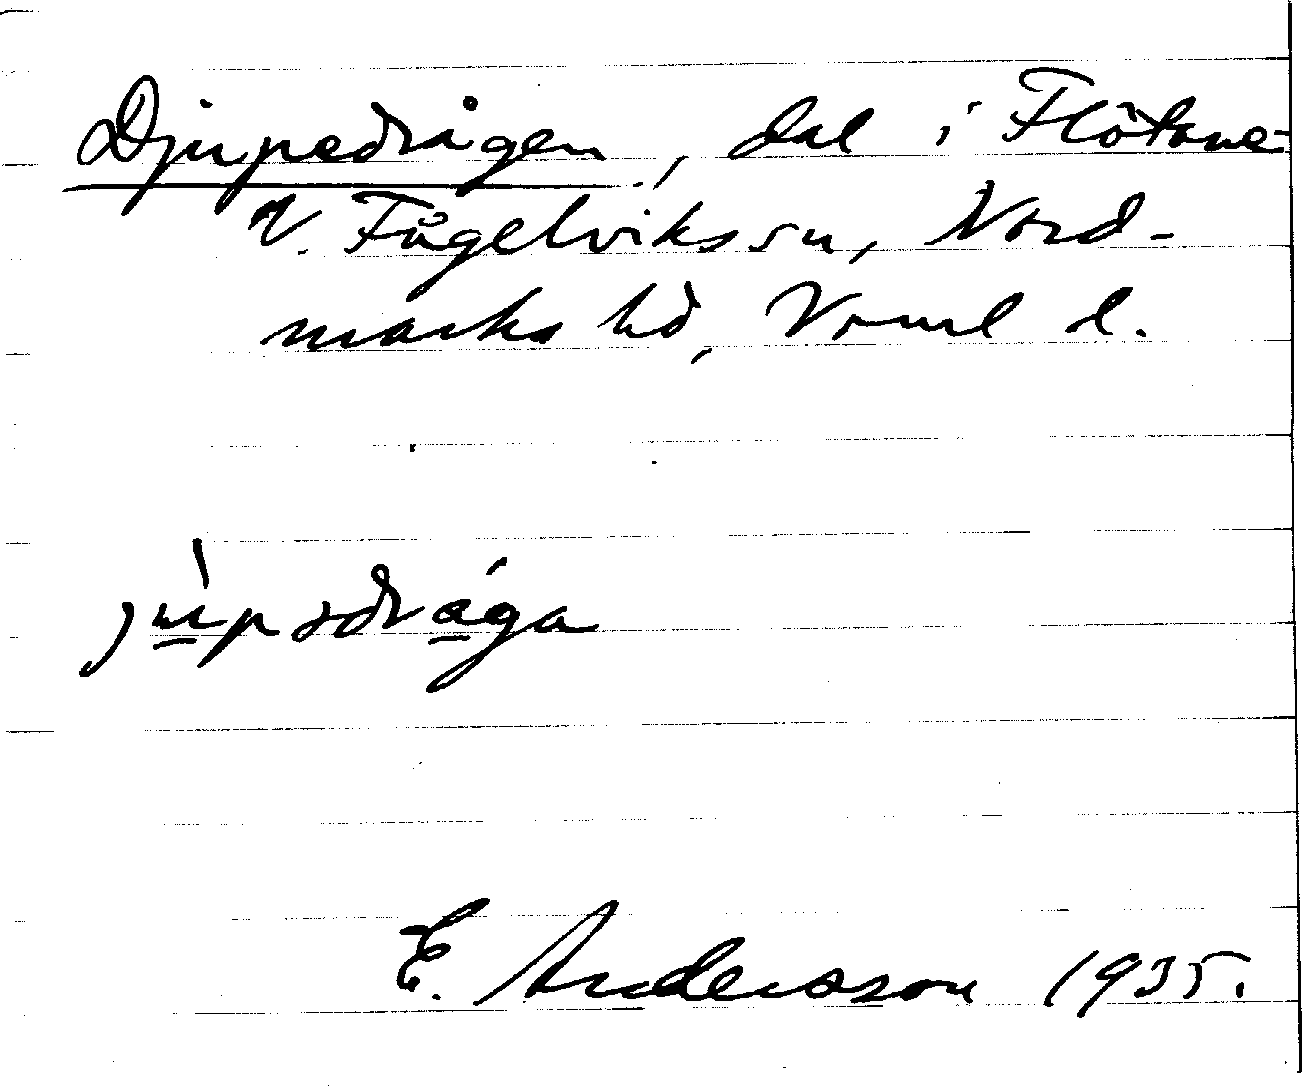 Djupedrågen, dal i Flötane
V. Fågelvikssn, Nord-
marks hd, Vrml l.
jùpədråga
E. Andersson 1935.